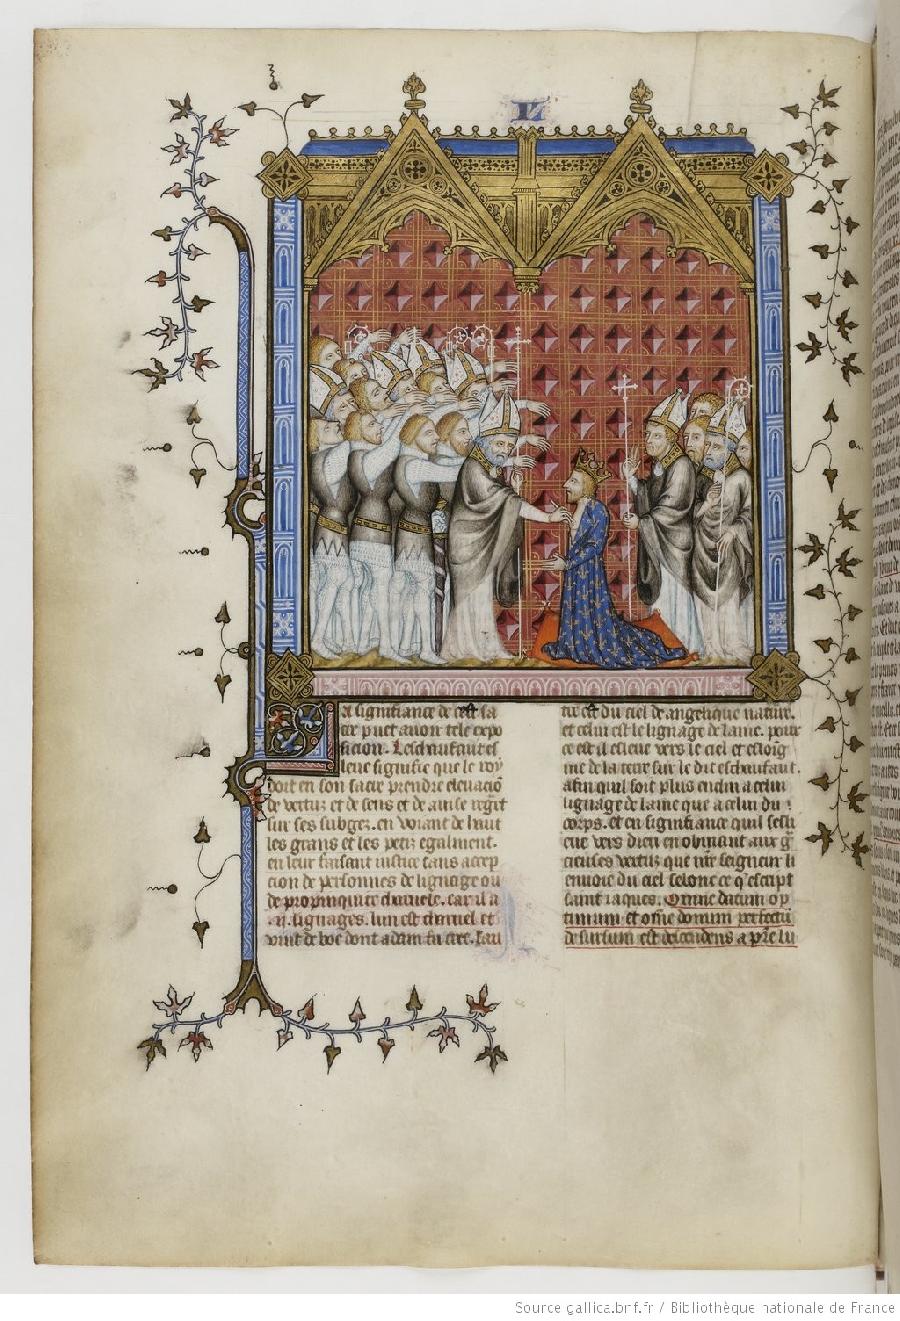 L
La signifiance de cest sa
cre puet auoir tele expo
sicion. Leschaufaut es
leue signifie que le roy
doit en son sacre prendre eleuacio
de vertuz et de sens et de auise regit
sur ses subgez. en voiant de hault
les grans et les petiz egalment.
en leur faisant iustice sans accep
cion de personnes de lignage ou
de propinquite charnele. car il a
.ii. lignages. lun est charnel et
vint de boe dont adam fu cree. lau
tre est du ciel de angelique nature.
et celui est le lignage de lame. pour
ce est il esleue vers le ciel et esloig
nie de la terre sur le dit eschaufaut.
afin quil soit plus enclin a celui
lignage de lame que a celui du
corps. et en signifiance quil seslie
ue vers dieu en obeissant aux gra
cieuses vertuz que nre seigneur li
enuoie du ciel selon ce q'escript
saint iaques. Omne datum op
timum et omne donum perfectu
desursum est descendens a pre lu
Source gallica.bnf.fr / Bibliothèque nationale de France